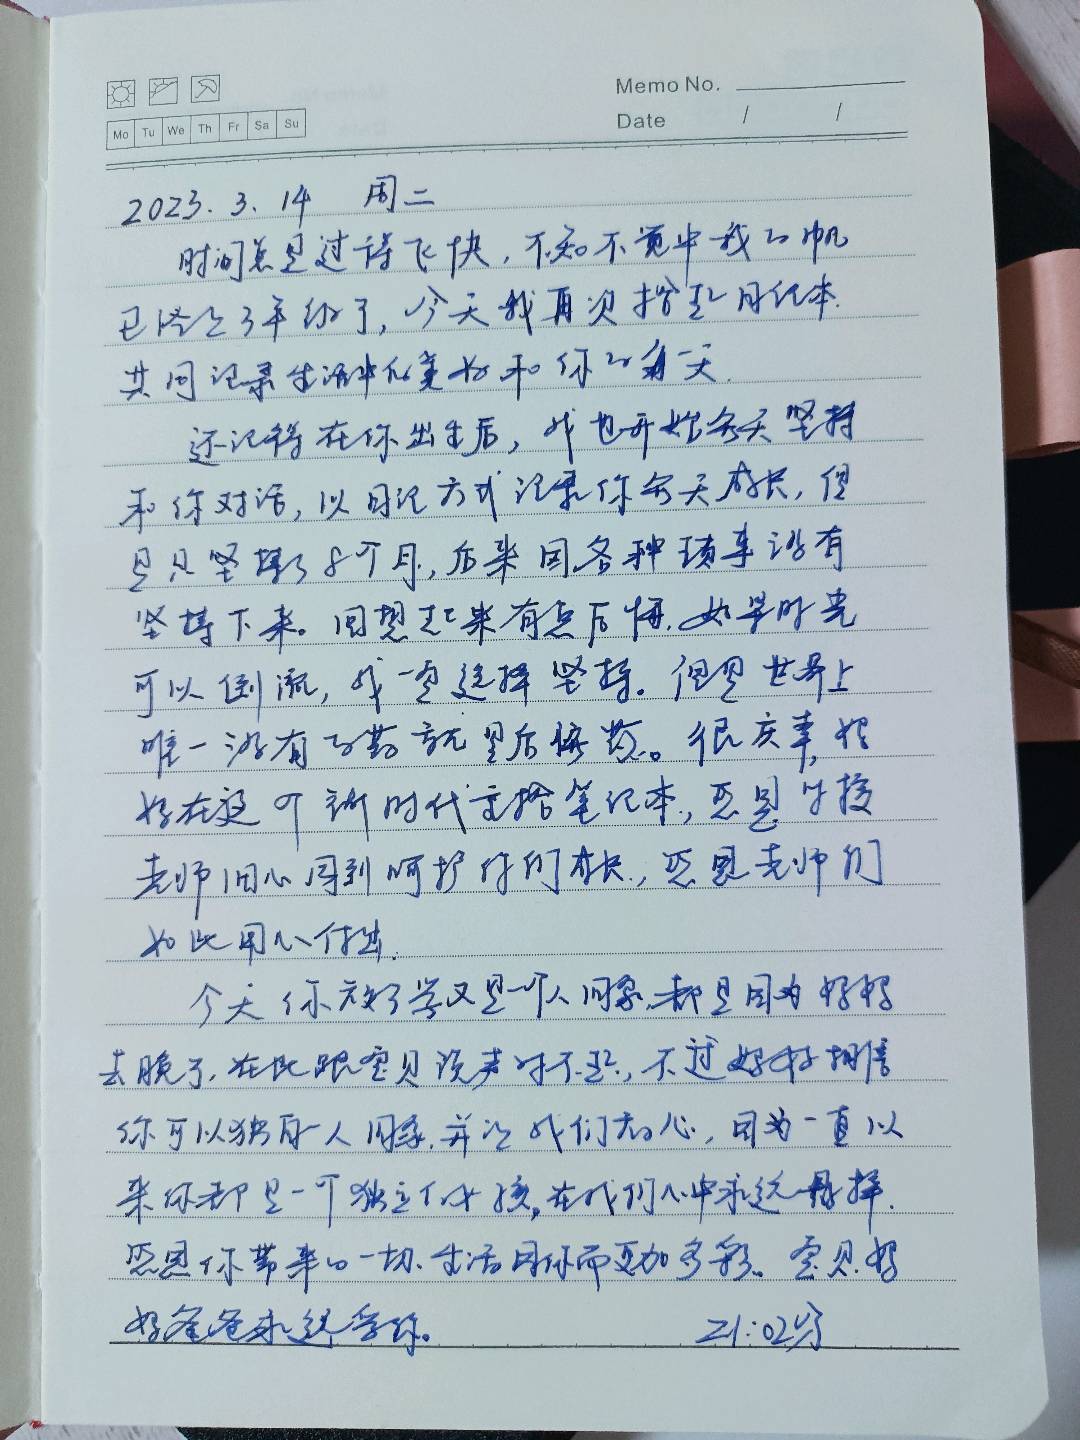 Memo No.
Mo Tu We Th Fr Sa Su
Date / /
2023.3.14 周二
时间总是过得飞快，不知不觉中我的
已经三年级了，今天我再次拾起日记本.
共同记录生活中的美好和你的每一天.
还记得在你出生后，我也开始每天坚持
和你对话，以日记方式记录你每天成长，但
是只坚持了8个月，后来因各种琐事没有
坚持下来。回想起来有点后悔.如果时光
可以倒流，我一定选择坚持。但是世界上
唯一没有的药就是后悔药。很庆幸，妈
妈在这个新时代重拾笔记本，感恩学校
老师用心周到呵护你们成长，感恩老师们
如此用心付出.
今天你放了学又是一个人回家，都是因为妈妈
去晚了.在此跟宝贝说声对不起，不过妈妈相信
你可以独自一人回家.并让我们放心，因为一直以
来你都是一个独立的女孩，在我们心中永远最棒.
感恩你带来的一切.生活因你而更加多彩。宝贝妈
妈爸爸永远爱你。 21:02分